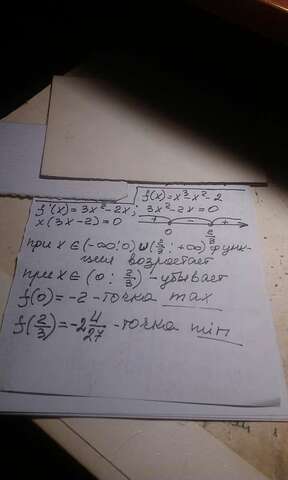 f(x)=x³-x²-2
f'(x)=3x²-2x; 3x²-2x=0
x(3x-2)=0 + - +
0 2/3
при x∈(-∞;0)∪(2/3;+∞) функ-
ция возростает
при x∈(0;2/3)-убывает
f(0)=-2-точка max
f(2/3)=-2 4/27-точка min